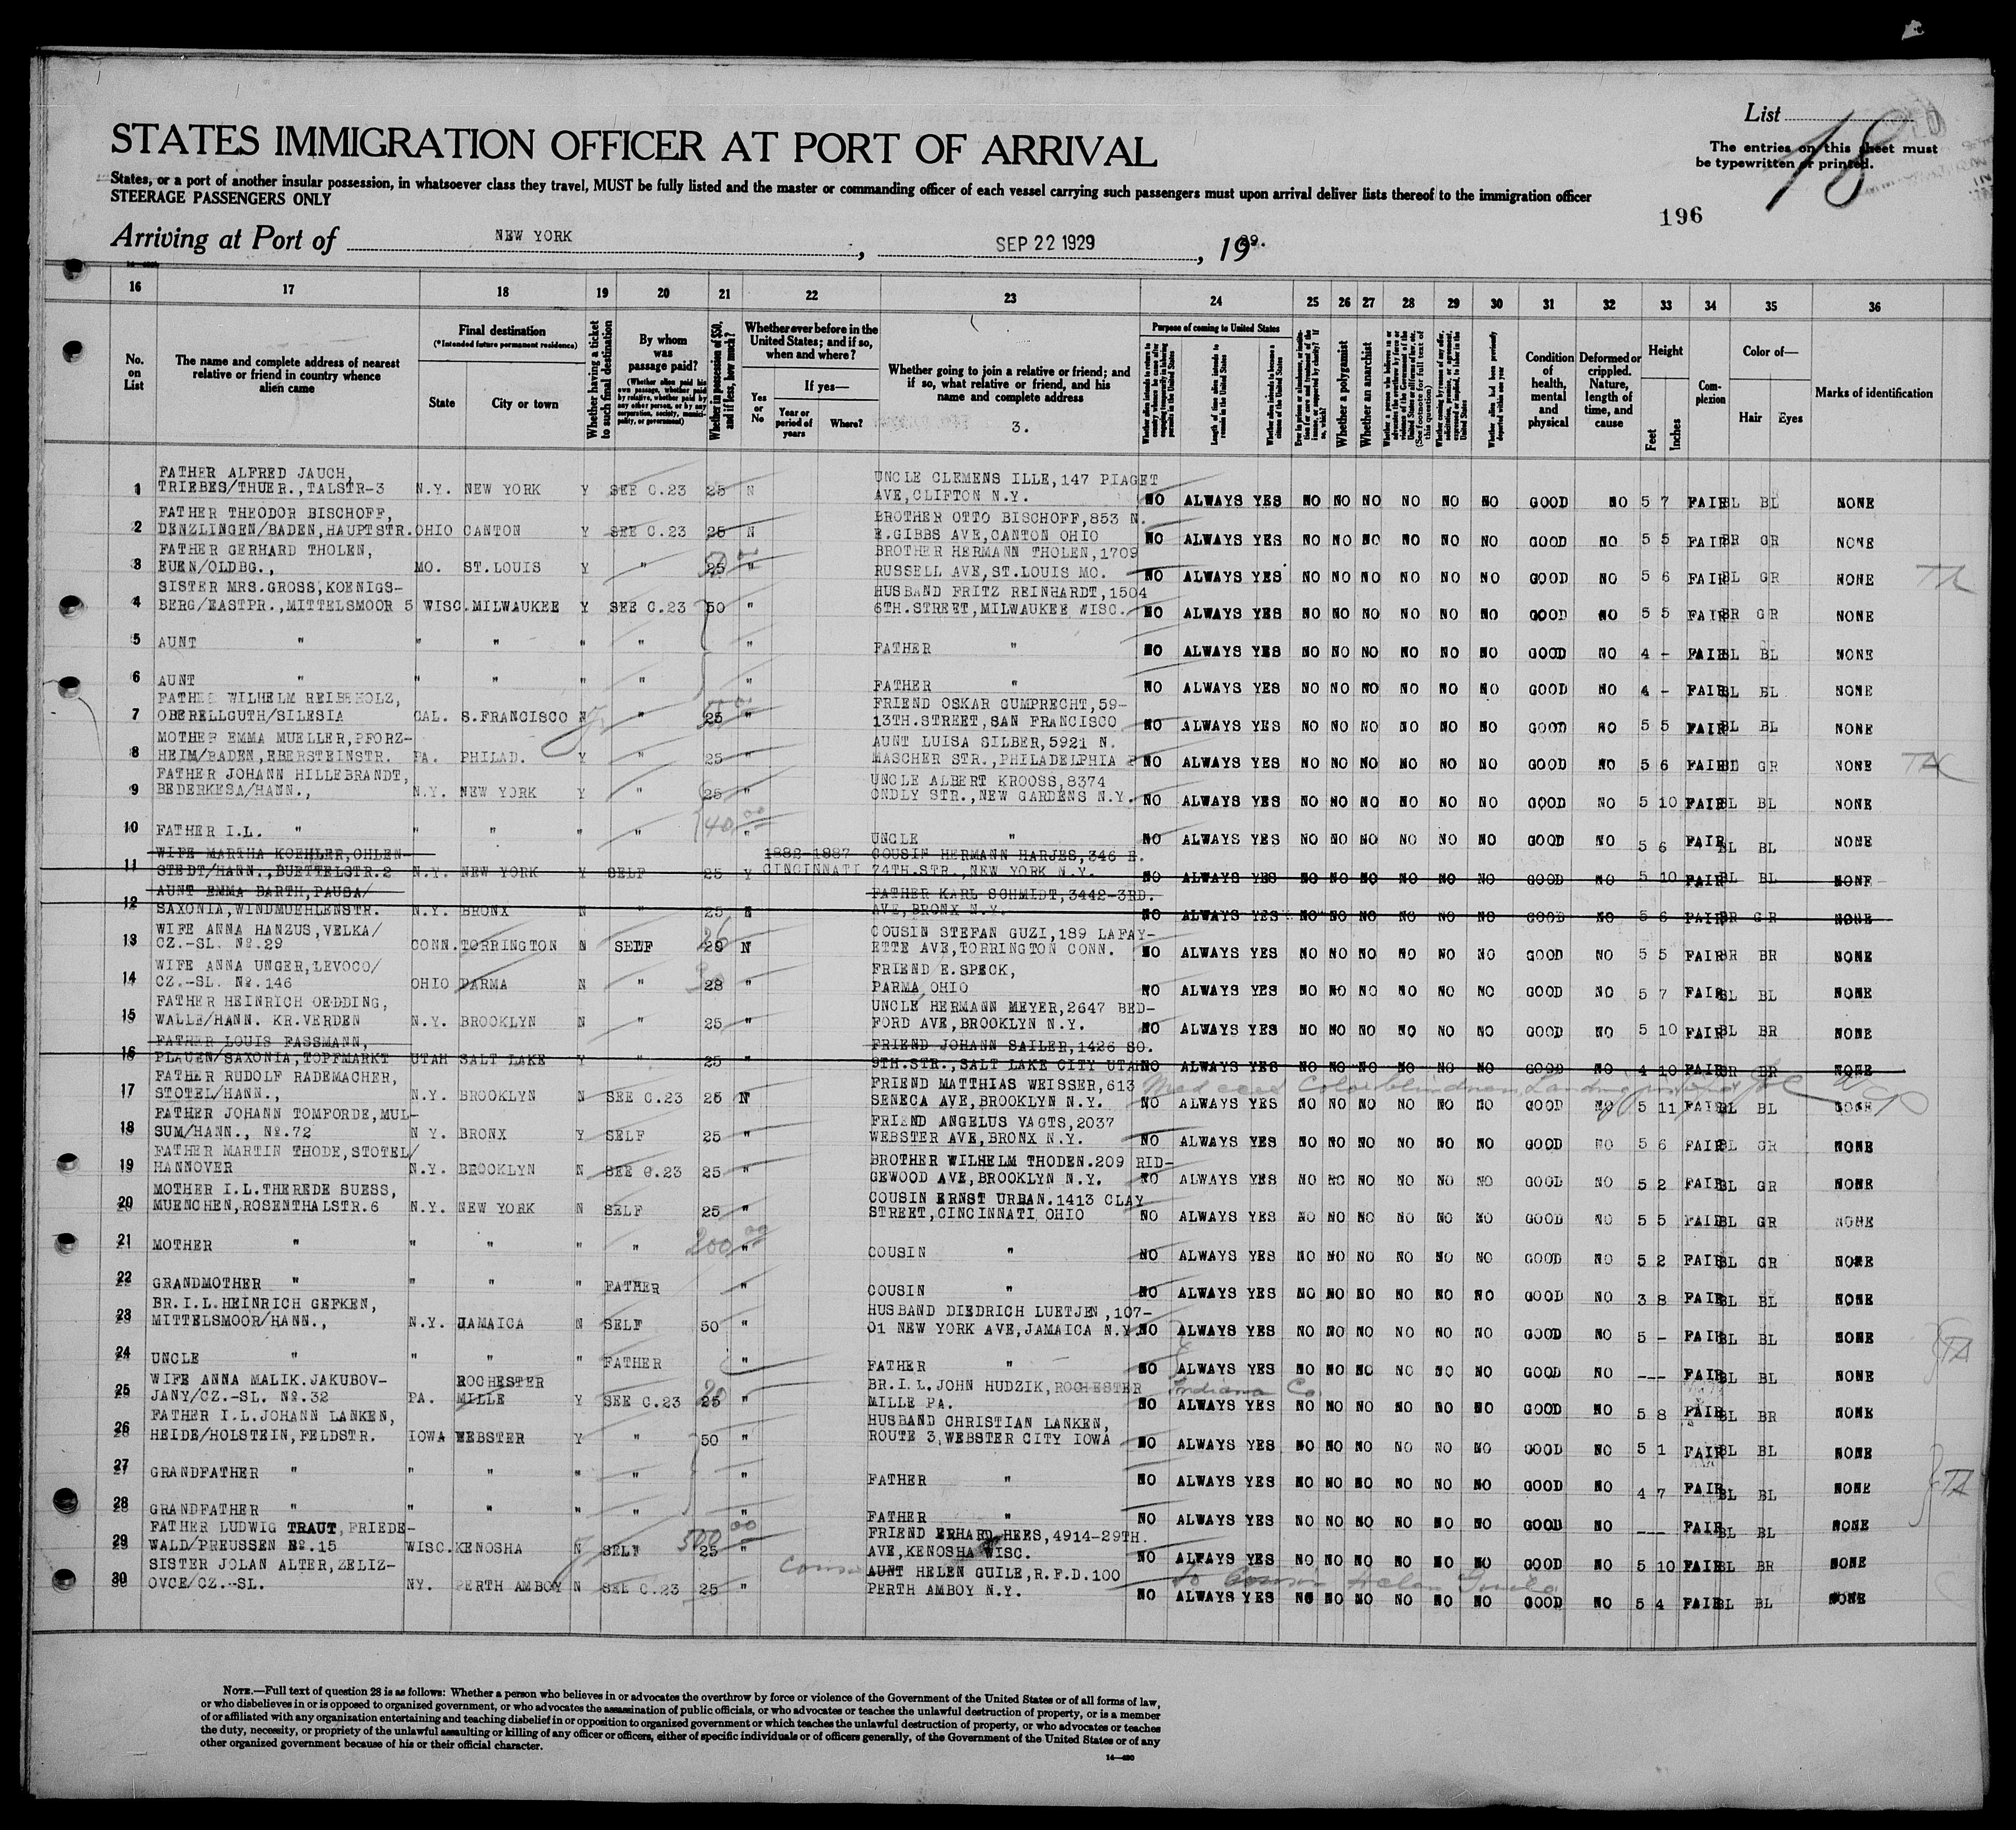 List
18
The entries on this sheet must
be typewritten or printed.
196
STATES IMMIGRATION OFFICER AT PORT OF ARRIVAL
States, or a port of another insular possession, in whatsoever class they travel, MUST be fully listed and the master or commanding officer of each vessel carrying such passengers must upon arrival deliver lists thereof to the immigration officer
STEERAGE PASSENGERS ONLY
Arriving at Port of NEW YORK, SEP 22 1929, 1929.
16 17 18 19 20 21 22 23 24 25 26 27 28 29 30 31 32 33 34 35 36
No. on List
The name and complete address of nearest relative or friend in country whence alien came
Final destination
(*Intended future permanent residence)
State
City or town
Whether having a ticket to such final destination
By whom was passage paid?
(Whether alien paid his own passage, whether paid by relative, whether paid by any other person, or by any corporation, society, municipality, or government)
Whether in possession of $50, and if less, how much?
Whether ever before in the United States; and if so, when and where?
Yes or No
If yes—
Year or period of years
Where?
Whether going to join a relative or friend; and if so, what relative or friend, and his name and complete address
3.
Purpose of coming to United States
Whether alien intends to return to country whence he came after engaging temporarily in laboring pursuits in the United States
Length of time alien intends to remain in the United States
Whether alien intends to become a citizen of the United States
Whether a polygamist
Whether an anarchist
Condition of health, mental and physical
Deformed or crippled. Nature, length of time, and cause
Height
Feet
Inches
Complexion
Color of—
Hair
Eyes
Marks of identification
FATHER ALFRED JAUCH, UNCLE CLEMENS ILLE,147 PIAGET
1 TRIEBES/THUER.,TALSTR-3 N.Y. NEW YORK Y SEE C.23 25 N AVE,CLIFTON N.Y. NO ALWAYS YES NO NO NO NO NO NO GOOD NO 5 7 FAIR BL BL NONE
FATHER THEODOR BISCHOFF, BROTHER OTTO BISCHOFF,853 N.
2 DENZLINGEN/BADEN,HAUPTSTR. OHIO CANTON Y SEE C.23 25 N E.GIBBS AVE,CANTON OHIO NO ALWAYS YES NO NO NO NO NO NO GOOD NO 5 5 FAIR BR GR NONE
FATHER GERHARD THOLEN, BROTHER HERMANN THOLEN,1709
3 EUEN/OLDBG., MO. ST.LOUIS Y " 25 " RUSSELL AVE,ST.LOUIS MO. NO ALWAYS YES NO NO NO NO NO NO GOOD NO 5 6 FAIR BL GR NONE
SISTER MRS.GROSS,KOENIGS- HUSBAND FRITZ REINHARDT,1504
4 BERG/EASTPR.,MITTELSMOOR 5 WISC. MILWAUKEE Y SEE C.23 50 " 6TH.STREET,MILWAUKEE WISC. NO ALWAYS YES NO NO NO NO NO NO GOOD NO 5 5 FAIR BR GR NONE
5 AUNT " " " " " " FATHER " NO ALWAYS YES NO NO NO NO NO NO GOOD NO 4 - FAIR BL BL NONE
6 AUNT " " " " " " FATHER " NO ALWAYS YES NO NO NO NO NO NO GOOD NO 4 - FAIR BL BL NONE
FATHER WILHELM REIBEHOLZ, FRIEND OSKAR GUMPRECHT,59-
7 OBERELLGUTH/SILESIA CAL. S.FRANCISCO N " 25 " 13TH.STREET,SAN FRANCISCO NO ALWAYS YES NO NO NO NO NO NO GOOD NO 5 5 FAIR BL BL NONE
MOTHER EMMA MUELLER,PFORZ- AUNT LUISA SILBER,5921 N.
8 HEIM/BADEN,EBERSTEINSTR. PA. PHILAD. Y " 25 " MASCHER STR.,PHILADELPHIA P NO ALWAYS YES NO NO NO NO NO NO GOOD NO 5 6 FAIR BD GR NONE
FATHER JOHANN HILLEBRANDT, UNCLE ALBERT KROOSS,8374
9 BEDERKESA/HANN., N.Y. NEW YORK Y " 25 " ONDLY STR.,NEW GARDENS N.Y. NO ALWAYS YES NO NO NO NO NO NO GOOD NO 5 10 FAIR BL BL NONE
10 FATHER I.L. " " " " " 40 00 " UNCLE " NO ALWAYS YES NO NO NO NO NO NO GOOD NO 5 6 FAIR BL BL NONE
WIFE MARTHA KOEHLER,OHLEN- 1882-1887 COUSIN HERMANN HARJES,346 E.
11 STEDT/HANN.,BUETTELSTR.2 N.Y. NEW YORK Y SELF 25 Y CINCINNATI 74TH.STR.,NEW YORK N.Y. NO ALWAYS YES NO NO NO NO NO NO GOOD NO 5 10 FAIR BL BL NONE
AUNT EMMA BARTH,PAUSA/ FATHER KARL SCHMIDT,3442-3RD.
12 SAXONIA,WINDMUEHLENSTR. N.Y. BRONX N " 25 N AVE,BRONX N.Y. NO ALWAYS YES NO NO NO NO NO NO GOOD NO 5 6 FAIR BR GR NONE
WIFE ANNA HANZUS,VELKA/ COUSIN STEFAN GUZI,189 LAFAY-
13 CZ.-SL. No.29 CONN. TORRINGTON N SELF 29 N ETTE AVE,TORRINGTON CONN. NO ALWAYS YES NO NO NO NO NO NO GOOD NO 5 5 FAIR BR BR NONE
WIFE ANNA UNGER,LEVOCO/ FRIEND E.SPECK,
14 CZ.-SL. No.146 OHIO PARMA N " 28 " PARMA OHIO NO ALWAYS YES NO NO NO NO NO NO GOOD NO 5 7 FAIR BL BL NONE
FATHER HEINRICH OEDDING, UNCLE HERMANN MEYER,2647 BED-
15 WALLE/HANN. KR.VERDEN N.Y. BROOKLYN N " 25 " FORD AVE,BROOKLYN N.Y. NO ALWAYS YES NO NO NO NO NO NO GOOD NO 5 10 FAIR BL BR NONE
FATHER LOUIS FASSMANN, FRIEND JOHANN SAILER,1426 SO.
16 PLAUEN/SAXONIA,TOPFMARKT UTAH SALT LAKE Y " 25 " 9TH.STR.,SALT LAKE CITY UTAH NO ALWAYS YES NO NO NO NO NO NO GOOD NO 4 10 FAIR BR BR NONE
FATHER RUDOLF RADEMACHER, FRIEND MATTHIAS WEISSER,613
17 STOTEL/HANN., N.Y. BROOKLYN N SEE C.23 25 N SENECA AVE,BROOKLYN N.Y. NO ALWAYS YES NO NO NO NO NO NO GOOD NO 5 11 FAIR BL BL NONE
FATHER JOHANN TOMFORDE,MUL- FRIEND ANGELUS VAGTS,2037
18 SUM/HANN., No.72 N.Y. BRONX Y SELF 25 " WEBSTER AVE,BRONX N.Y. NO ALWAYS YES NO NO NO NO NO NO GOOD NO 5 6 FAIR BL GR NONE
FATHER MARTIN THODE,STOTEL/ BROTHER WILHELM THODEN.209 RID-
19 HANNOVER N.Y. BROOKLYN N SEE C.23 25 " GEWOOD AVE,BROOKLYN N.Y. NO ALWAYS YES NO NO NO NO NO NO GOOD NO 5 2 FAIR BL GR NONE
MOTHER I.L.THEREDE SUESS, COUSIN ERNST URBAN.1413 CLAY
20 MUENCHEN,ROSENTHALSTR.6 N.Y. NEW YORK N SELF 25 " STREET,CINCINNATI OHIO NO ALWAYS YES NO NO NO NO NO NO GOOD NO 5 5 FAIR BL GR NONE
21 MOTHER " " " " " 200 00 " COUSIN " NO ALWAYS YES NO NO NO NO NO NO GOOD NO 5 2 FAIR BL GR NONE
22 GRANDMOTHER " " " " FATHER " COUSIN " NO ALWAYS YES NO NO NO NO NO NO GOOD NO 3 8 FAIR BL BL NONE
BR.I.L.HEINRICH GEFKEN, HUSBAND DIEDRICH LUETJEN,107-
23 MITTELSMOOR/HANN., N.Y. JAMAICA N SELF 50 " 01 NEW YORK AVE,JAMAICA N.Y. NO ALWAYS YES NO NO NO NO NO NO GOOD NO 5 - FAIR BL BL NONE
24 UNCLE " " " " FATHER " FATHER " NO ALWAYS YES NO NO NO NO NO NO GOOD NO --- FAIR BL BL NONE
WIFE ANNA MALIK.JAKUBOV- ROCHESTER BR.I.L.JOHN HUDZIK,ROCHESTER Indiana Co
25 JANY/CZ.-SL. No.32 PA. MILLE Y SEE C.23 25 " MILLE PA. NO ALWAYS YES NO NO NO NO NO NO GOOD NO 5 8 FAIR BL BR NONE
FATHER I.L.JOHANN LANKEN, HUSBAND CHRISTIAN LANKEN,
26 HEIDE/HOLSTEIN,FELDSTR. IOWA WEBSTER Y " 50 " ROUTE 3,WEBSTER CITY IOWA NO ALWAYS YES NO NO NO NO NO NO GOOD NO 5 1 FAIR BL BL NONE
27 GRANDFATHER " " " " " " FATHER " NO ALWAYS YES NO NO NO NO NO NO GOOD NO 4 7 FAIR BL BL NONE
28 GRANDFATHER " " " " " " FATHER " NO ALWAYS YES NO NO NO NO NO NO GOOD NO --- FAIR BL BL NONE
FATHER LUDWIG TRAUT,FRIEDE- 500 00 FRIEND ERHARD HEES,4914-29TH.
29 WALD/PREUSSEN No.15 WISC. KENOSHA N SELF 25 " AVE,KENOSHA WISC. NO ALWAYS YES NO NO NO NO NO NO GOOD NO 5 10 FAIR BL BR NONE
SISTER JOLAN ALTER,ZELIZ- AUNT HELEN GUILE,R.F.D.100 to Cousin Helen Guile
30 OVCE/CZ.-SL. NY. PERTH AMBOY N SEE C.23 25 " PERTH AMBOY N.Y. NO ALWAYS YES NO NO NO NO NO NO GOOD NO 5 4 FAIR BL BL NONE
NOTE.—Full text of question 28 is as follows: Whether a person who believes in or advocates the overthrow by force or violence of the Government of the United States or of all forms of law,
or who disbelieves in or is opposed to organized government, or who advocates the assassination of public officials, or who advocates or teaches the unlawful destruction of property, or is a member
of or affiliated with any organization entertaining and teaching disbelief in or opposition to organized government or which teaches the unlawful destruction of property, or who advocates or teaches
the duty, necessity, or propriety of the unlawful assaulting or killing of any officer or officers, either of specific individuals or of officers generally, of the Government of the United States or of any
other organized government because of his or their official character.